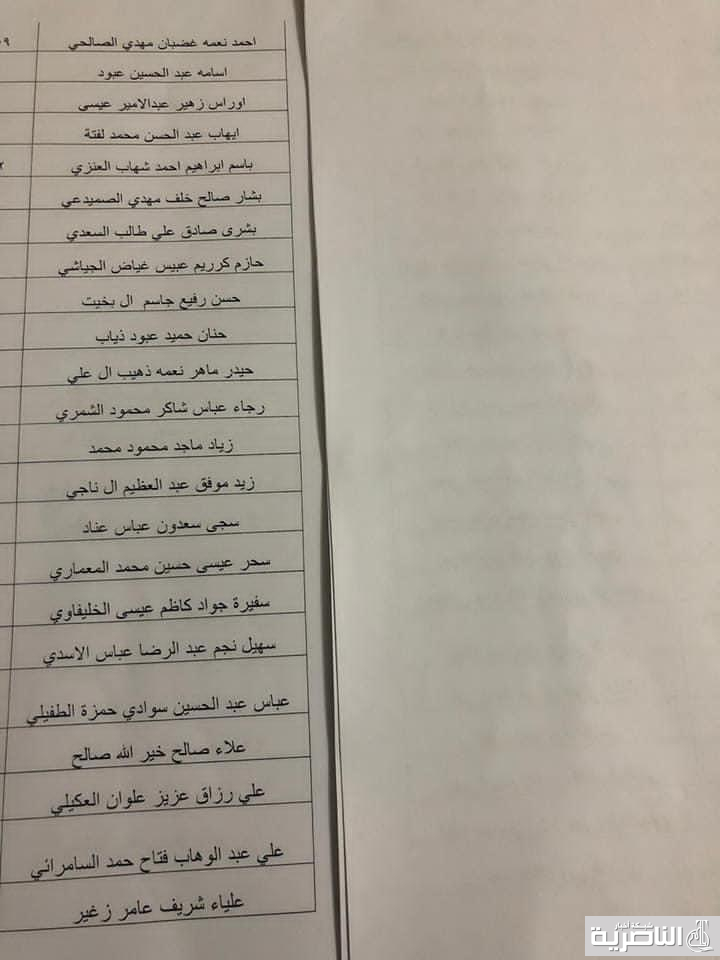 احمد نعمه غضبان مهدي الصالحي
اسامه عبد الحسين عبود
اوراس زهير عبدالامير عيسى
ايهاب عبد الحسن محمد لفتة
باسم ابراهيم احمد شهاب العنزي
بشار صالح خلف مهدي الصميدعي
بشرى صادق علي طالب السعدي
حازم كرريم عبيس غياض الجياشي
حسن رفيع جاسم ال بخيت
حنان حميد عبود ذياب
حيدر ماهر نعمه ذهيب ال علي
رجاء عباس شاكر محمود الشمري
زياد ماجد محمود محمد
زيد موفق عبد العظيم ال ناجي
سجى سعدون عباس عناد
سحر عيسى حسين محمد المعماري
سفيرة جواد كاظم عيسى الخليفاوي
سهيل نجم عبد الرضا عباس الاسدي
عباس عبد الحسين سوادي حمزة الطفيلي
علاء صالح خير الله صالح
علي رزاق عزيز علوان العكيلي
علي عبد الوهاب فتاح حمد السامرائي
علياء شريف عامر زغير
شبكة اخبار
الناصرية